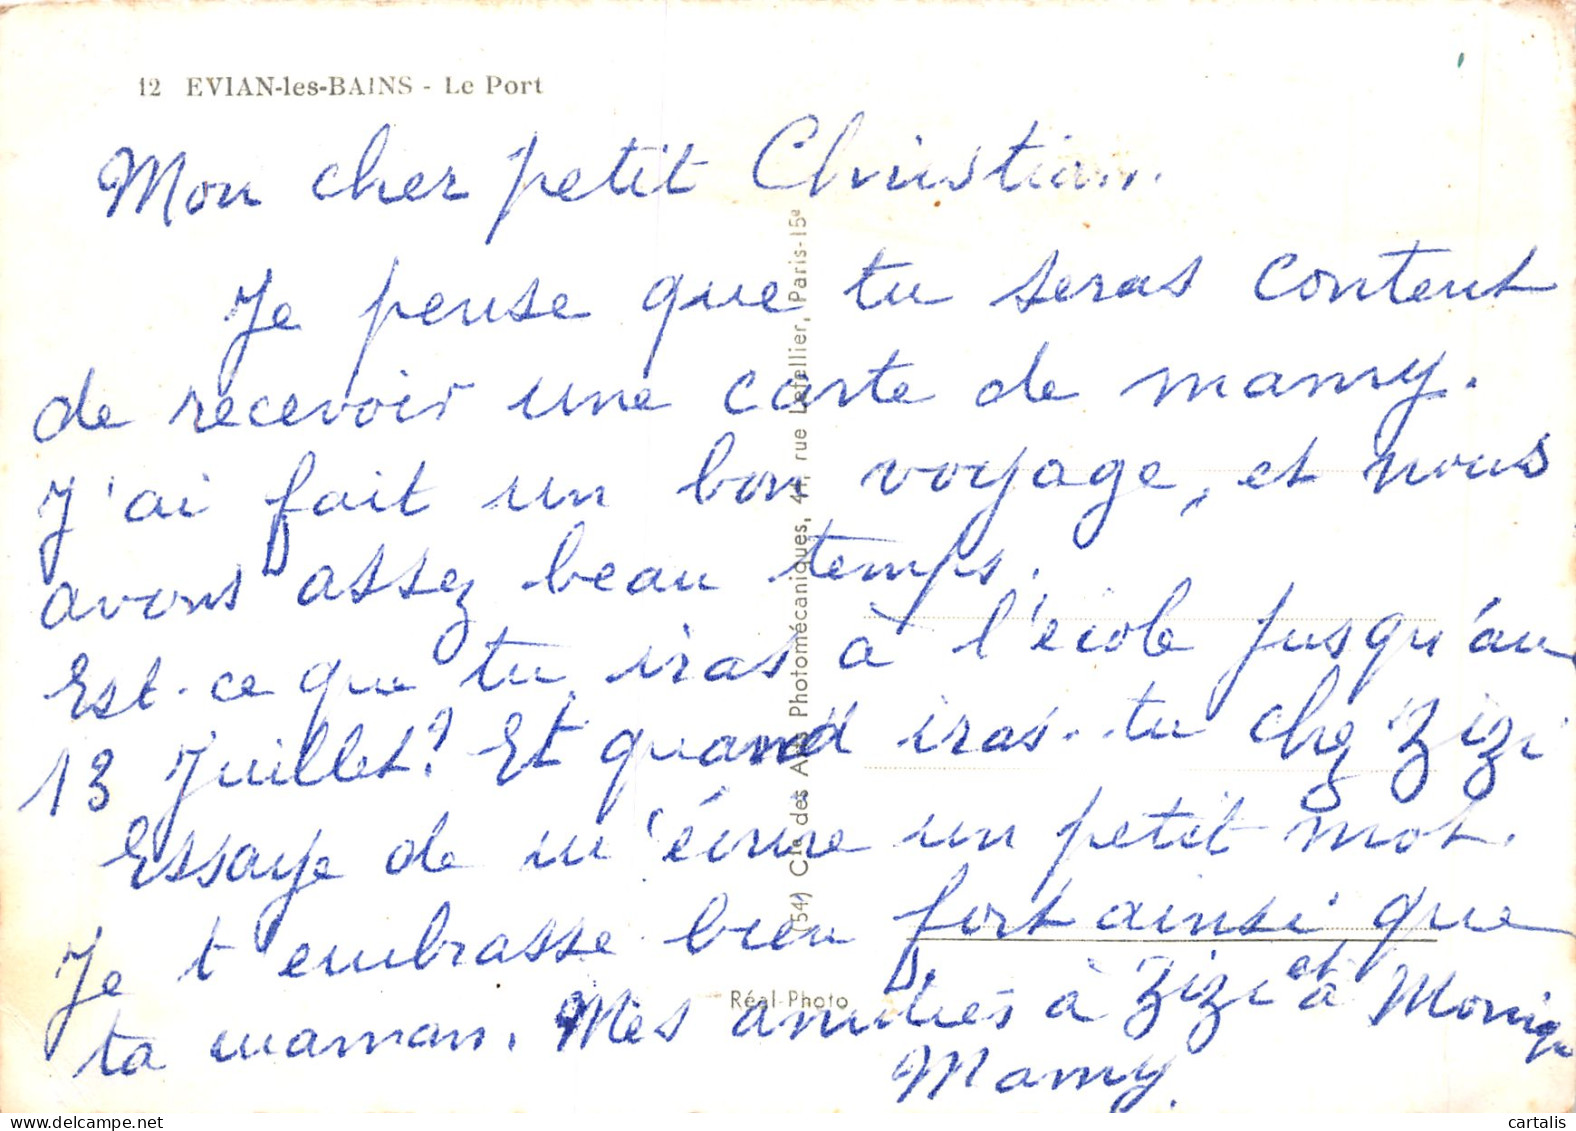 12 EVIAN-les-BAINS - Le Port
Mon cher petit Christian.
Je pense que tu seras content
de recevoir une carte de mamy.
J'ai fait un bon voyage, et nous
avons assez beau temps.
Est-ce que tu iras à l'école jusqu'au
13 Juillet? Et quand iras-tu chez Zizi
Essaye de m'écrire un petit mot.
Je t'embrasse bien fort ainsi que
ta maman. Mes amitiés à Zizi et à Monique
Mamy.
(54) Cie des Arts Photomécaniques, 44, rue Letellier, Paris-15e
Réal-Photo
cartalis